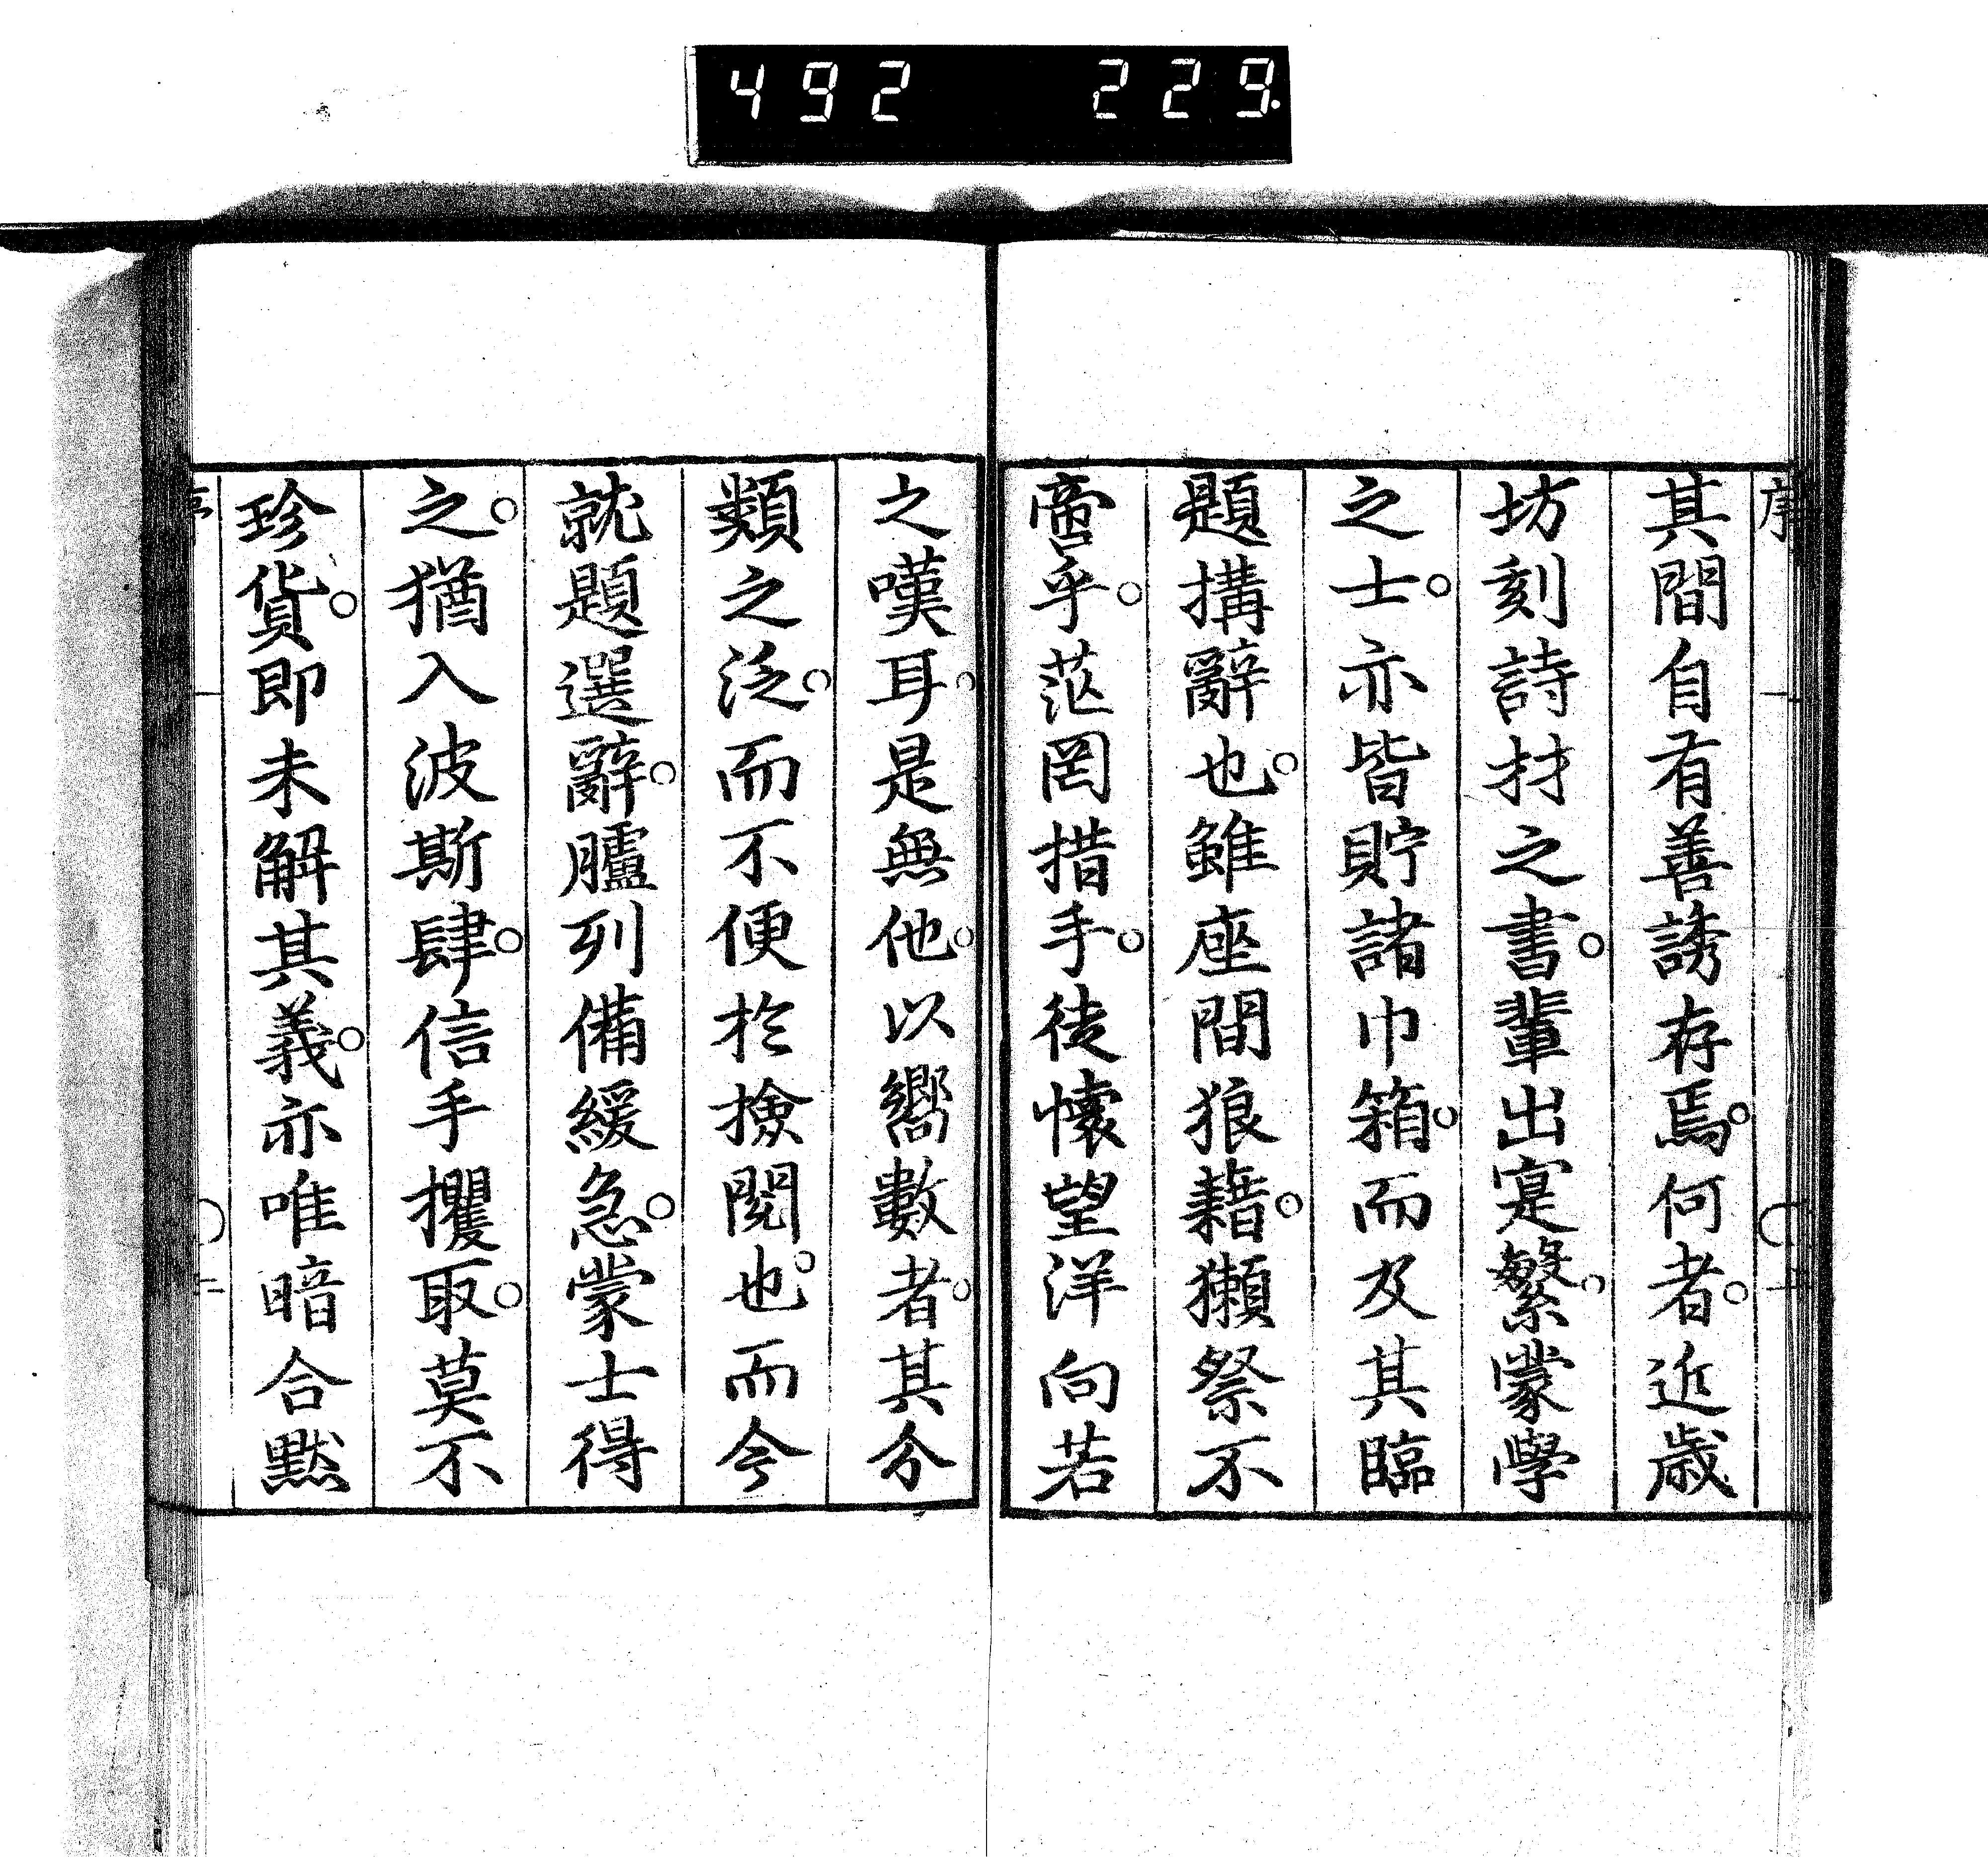 492 229.
序 一
其間自有善誘存焉。何者。近歳
坊刻詩材之書。輩出寔繁。蒙學
之士。亦皆貯諸巾箱。而及其臨
題搆辭也。雖座間狼藉。獺祭不
啻乎。茫罔措手。徒懷望洋向若
之嘆耳。是無他。以嚮數者。其分
類之泛。而不便於撿閲也。而今
就題選辭。臚列備緩急。蒙士得
之。猶入波斯肆。信手攫取。莫不
珍貨。即未解其義。亦唯暗合黙